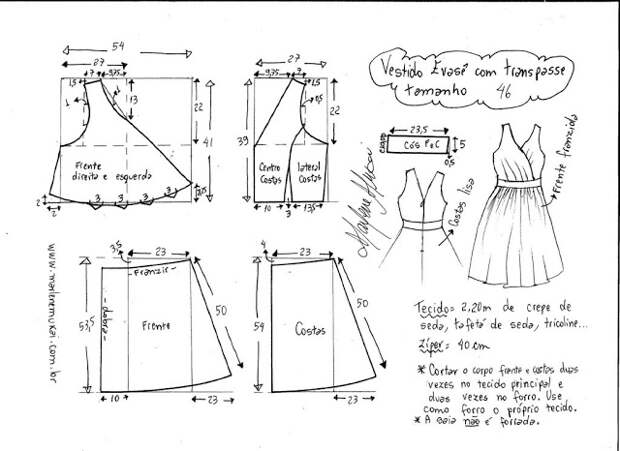 54
27
7
9,75
1,5
13
22
41
1
Frente
direita e esquerda
3
3
3
3
2
2
27
9,75
7
1,5
0,5
22
39
Centro
Costas
lateral
Costas
10
3
13,5
Vestido Evasê com transpasse
tamanho 46
23,5
Cós F e C
5
0,5
Costas lisa
Frente franzida
Marlene Mukai
www.marlenemukai.com.br
3,5
23
Franzir
53,5
dobra
Frente
50
10
23
4
23
54
Costas
50
23
Tecido= 2,20m de crepe de
seda, tafetá de seda, tricoline...
Zíper= 40 cm
* Cortar o corpo frente e costas duas
vezes no tecido principal e
duas vezes no forro. Use
como forro o próprio tecido.
* A saia não é forrada.